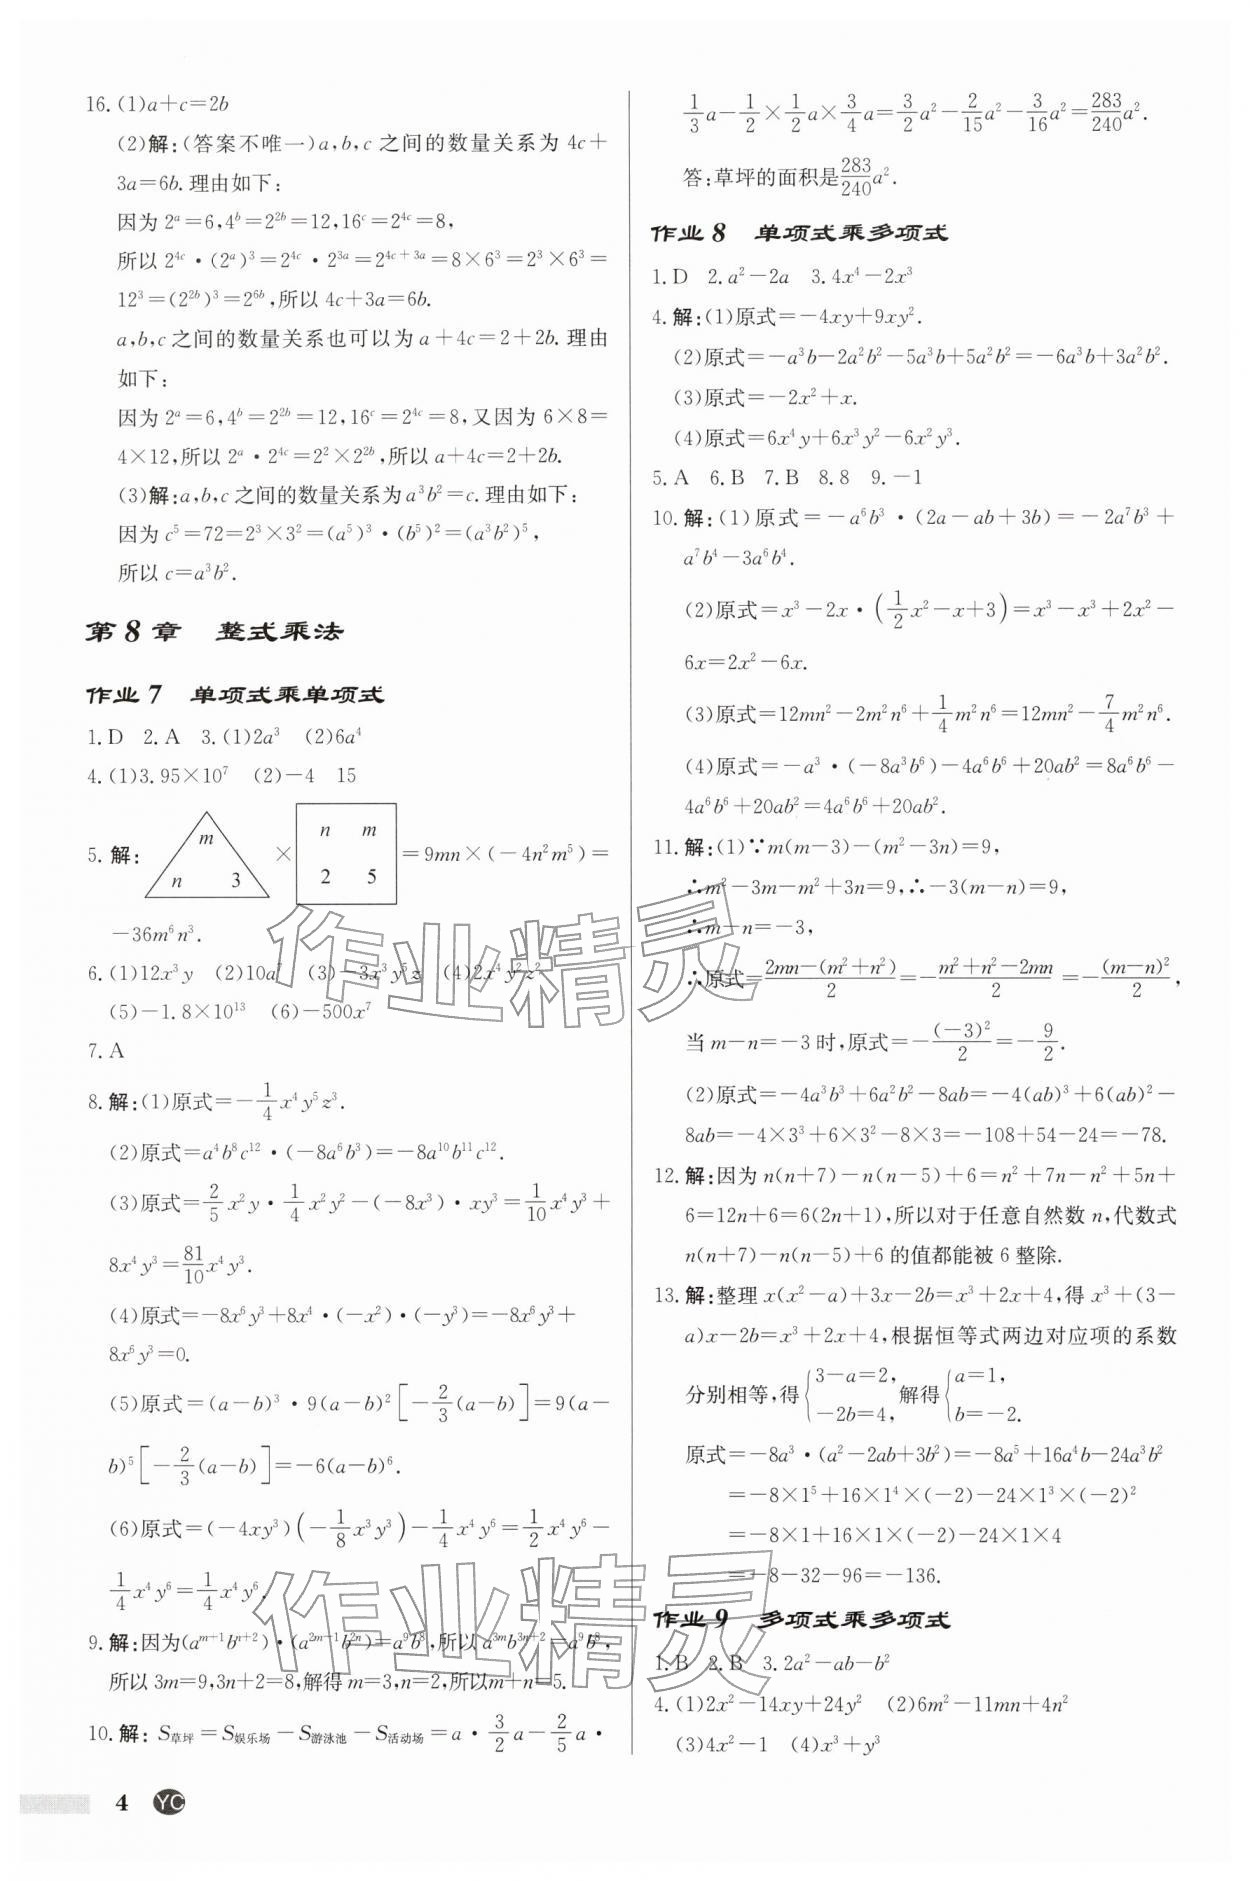 16.(1)a+c=2b
(2)解:(答案不唯一)a,b,c 之间的数量关系为 4c+
3a=6b.理由如下:
因为 2ᵃ=6,4ᵇ=2²ᵇ=12,16ᶜ=2⁴ᶜ=8,
所以 2⁴ᶜ·(2ᵃ)³=2⁴ᶜ·2³ᵃ=2⁴ᶜ⁺³ᵃ=8×6³=2³×6³=
12³=(2²ᵇ)³=2⁶ᵇ,所以 4c+3a=6b.
a,b,c之间的数量关系也可以为 a+4c=2+2b.理由
如下:
因为 2ᵃ=6,4ᵇ=2²ᵇ=12,16ᶜ=2⁴ᶜ=8,又因为 6×8=
4×12,所以 2ᵃ·2⁴ᶜ=2²×2²ᵇ,所以 a+4c=2+2b.
(3)解:a,b,c之间的数量关系为 a³b²=c.理由如下:
因为 c⁵=72=2³×3²=(a⁵)³·(b⁵)²=(a³b²)⁵,
所以 c=a³b².
第8章 整式乘法
作业7 单项式乘单项式
1.D 2.A 3.(1)2a³ (2)6a⁴
4.(1)3.95×10⁷ (2)-4 15
5.解: m n 3 × n m 2 5 =9mn×(-4n²m⁵)=
-36m⁶n³.
6.(1)12x³y (2)10a⁷ (3)-3x³y⁵z (4)2x⁴y²z²
(5)-1.8×10¹³ (6)-500x⁷
7.A
8.解:(1)原式=-1/4x⁴y⁵z³.
(2)原式=a⁴b⁸c¹²·(-8a⁶b³)=-8a¹⁰b¹¹c¹².
(3)原式=2/5x²y·1/4x²y²-(-8x³)·xy³=1/10x⁴y³+
8x⁴y³=81/10x⁴y³.
(4)原式=-8x⁶y³+8x⁴·(-x²)·(-y³)=-8x⁶y³+
8x⁶y³=0.
(5)原式=(a-b)³·9(a-b)²[-2/3(a-b)]=9(a-
b)⁵[-2/3(a-b)]=-6(a-b)⁶.
(6)原式=(-4xy³)(-1/8x³y³)-1/4x⁴y⁶=1/2x⁴y⁶-
1/4x⁴y⁶=1/4x⁴y⁶.
9.解:因为(aᵐ⁺¹bⁿ⁺²)·(a²ᵐ⁻¹b²ⁿ)=a⁹b⁸,所以a³ᵐb³ⁿ⁺²=a⁹b⁸,
所以 3m=9,3n+2=8,解得 m=3,n=2,所以m+n=5.
10.解:S草坪=S娱乐场-S游泳池-S活动场=a·3/2a-2/5a·
1/3a-1/2×1/2a×3/4a=3/2a²-2/15a²-3/16a²=283/240a².
答:草坪的面积是283/240a².
作业8 单项式乘多项式
1.D 2.a²-2a 3.4x⁴-2x³
4.解:(1)原式=-4xy+9xy².
(2)原式=-a³b-2a²b²-5a³b+5a²b²=-6a³b+3a²b².
(3)原式=-2x²+x.
(4)原式=6x⁴y+6x³y²-6x²y³.
5.A 6.B 7.B 8.8 9.-1
10.解:(1)原式=-a⁶b³·(2a-ab+3b)=-2a⁷b³+
a⁷b⁴-3a⁶b⁴.
(2)原式=x³-2x·(1/2x²-x+3)=x³-x³+2x²-
6x=2x²-6x.
(3)原式=12mn²-2m²n⁶+1/4m²n⁶=12mn²-7/4m²n⁶.
(4)原式=-a³·(-8a³b⁶)-4a⁶b⁶+20ab²=8a⁶b⁶-
4a⁶b⁶+20ab²=4a⁶b⁶+20ab².
11.解:(1)∵m(m-3)-(m²-3n)=9,
∴m²-3m-m²+3n=9,∴-3(m-n)=9,
∴m-n=-3,
∴原式=2mn-(m²+n²)/2=-m²+n²-2mn/2=-(m-n)²/2,
当 m-n=-3时,原式=-(-3)²/2=-9/2.
(2)原式=-4a³b³+6a²b²-8ab=-4(ab)³+6(ab)²-
8ab=-4×3³+6×3²-8×3=-108+54-24=-78.
12.解:因为 n(n+7)-n(n-5)+6=n²+7n-n²+5n+
6=12n+6=6(2n+1),所以对于任意自然数 n,代数式
n(n+7)-n(n-5)+6 的值都能被 6 整除.
13.解:整理 x(x²-a)+3x-2b=x³+2x+4,得 x³+(3-
a)x-2b=x³+2x+4,根据恒等式两边对应项的系数
分别相等,得{3-a=2, -2b=4,解得{a=1, b=-2.
原式=-8a³·(a²-2ab+3b²)=-8a⁵+16a⁴b-24a³b²
=-8×1⁵+16×1⁴×(-2)-24×1³×(-2)²
=-8×1+16×1×(-2)-24×1×4
=-8-32-96=-136.
作业9 多项式乘多项式
1.B 2.B 3.2a²-ab-b²
4.(1)2x²-14xy+24y² (2)6m²-11mn+4n²
(3)4x²-1 (4)x³+y³
4 YC
作业精灵
作业精灵